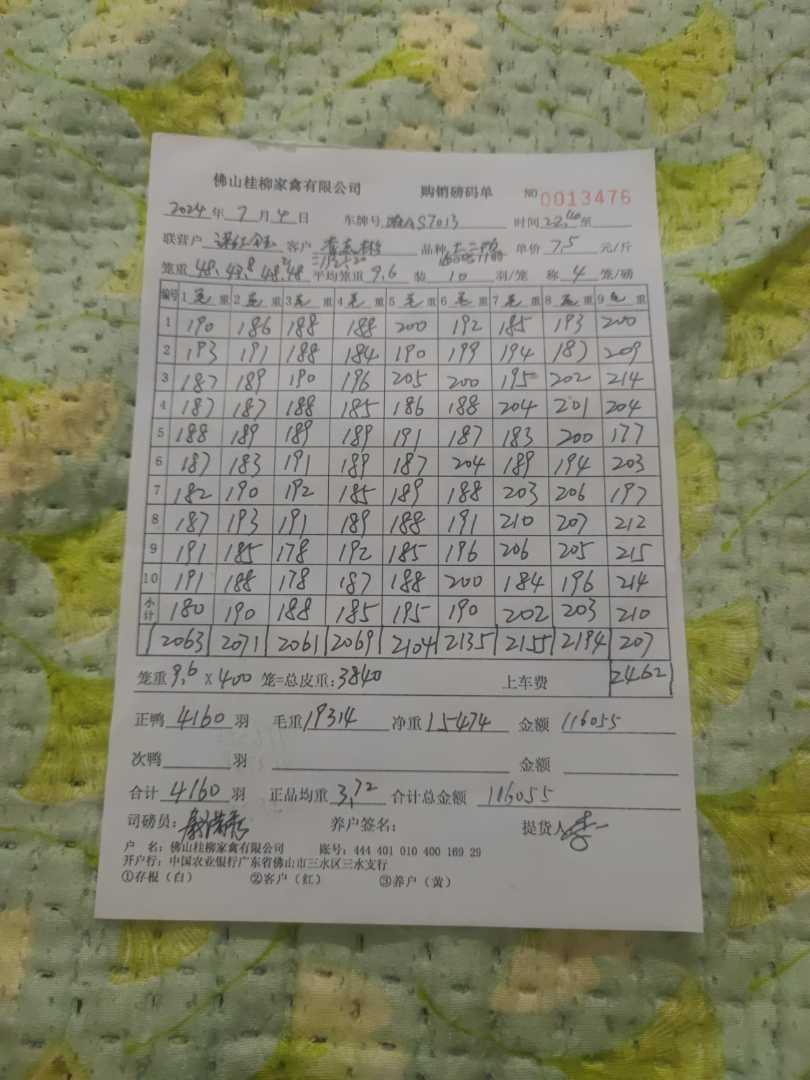 佛山桂柳家禽有限公司 购销磅码单 NO 0013476
2024年 7月 4日 车牌号 S7013 时间 22:40 至
联营户 客户 品种 单价 7.5 元/斤
笼重 48、48.8 48.2 48 平均笼重 9.6 装 10 羽/笼 称 4 笼/磅
编号 1 毛重 2 毛重 3 毛重 4 毛重 5 毛重 6 毛重 7 毛重 8 毛重 9 毛重
1 190 186 188 188 200 192 185 193 200
2 193 191 188 184 190 199 194 187 209
3 187 189 190 196 205 200 195 202 214
4 187 187 188 185 186 188 204 201 204
5 188 189 189 189 191 187 183 200 177
6 187 183 191 189 187 204 189 194 203
7 182 190 192 185 189 188 203 206 197
8 187 193 191 189 188 191 210 207 212
9 191 185 178 192 185 196 206 205 215
10 191 188 178 187 188 200 184 196 214
小计 180 190 188 185 195 190 202 203 210
2063 2071 2061 2069 2104 2135 2155 2194 207
笼重 9.6 X 400 笼=总皮重:3840 上车费 2462
正鸭 4160 羽 毛重 19314 净重 15474 金额 116055
次鸭 羽 金额
合计 4160 羽 正品均重 3.72 合计总金额 116055
司磅员: 养户签名: 提货人
户 名:佛山桂柳家禽有限公司 账号:444 401 010 400 169 29
开户行:中国农业银行广东省佛山市三水区三水支行
①存根(白) ②客户(红) ③养户(黄)